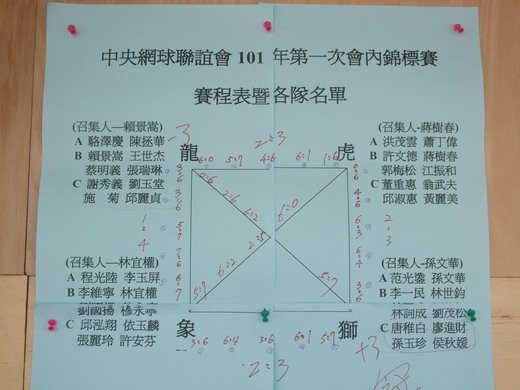 中央網球聯誼會 101 年第一次會內錦標賽
賽程表暨各隊名單
(召集人—賴景嵩)
A 駱澤慶 陳拯華
B 賴景嵩 王世杰
蔡明義 張瑞琳
C 謝秀義 劉玉堂
施 菊 邱麗貞
龍
虎
(召集人-蔣樹春)
A 洪茂雲 蕭丁偉
B 許文德 蔣樹春
郭梅松 江振和
C 董重惠 翁武夫
邱淑惠 黃麗美
-3
2=3
6=0 5=7 4=6 6=1 1=6
6=0
2=3
(召集人—林宜權)
A 程光陸 李玉屏
B 李維寧 林宜權
劉國揚 楊永亭
C 邱泓翔 依玉麟
張麗玲 許安芬
象
獅
(召集人-孫文華)
A 范光鎏 孫文華
B 李一民 林世鈞
林詞成 劉茂松
C 唐稚白 廖進財
孫玉珍 侯秋媛
3=6 6=4 3=6 6=1 5=7
2=3
+3